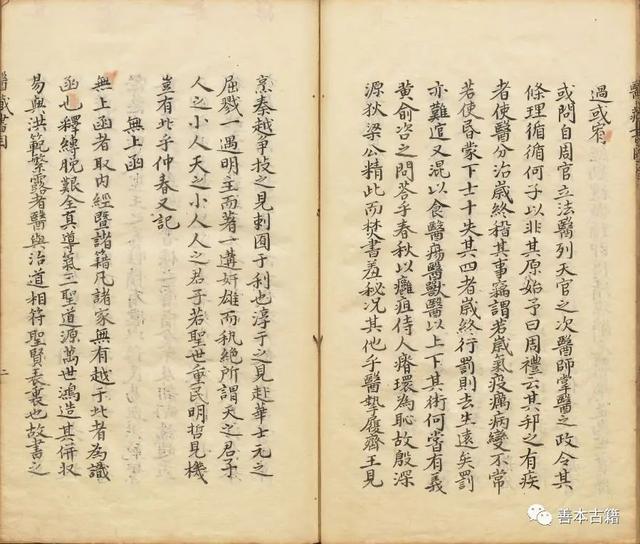 過或宥
或問自周官立法醫列天官之次醫師掌醫之政令其
條理循循何子以非其原始予曰周禮云其邦之有疾
者使醫分治歲終稽其事竊謂若歲氣疫癘病變不常
若使昏蒙下士十失其四者歲終行罰則去生遠矣罰
亦難逭又混以食醫瘍醫獸醫以上下其術何嘗有義
黃俞咨之問荅乎春秋以癰疽侍人瘠環為恥故殷深
源狄梁公精此而焚書羞秘况其他乎醫摯履齊王見
烹秦越爭技之見刺囿于利也淳于之見赴華士元之
屈戮一遇明主而著一遘奸雄而秇絶所謂天之君子
人之小人天之小人人之君子若聖世重民明哲見機
豈有此乎仲春又記
無上函
無上函者取內經暨諸籍凡諸家無有越于此者為識
函也釋縛脫艱全真導氣三聖道源萬世鴻造其併収
易與洪範繁露者醫與治道相符聖賢表裏也故書之
醫藏書目
二
善本古籍